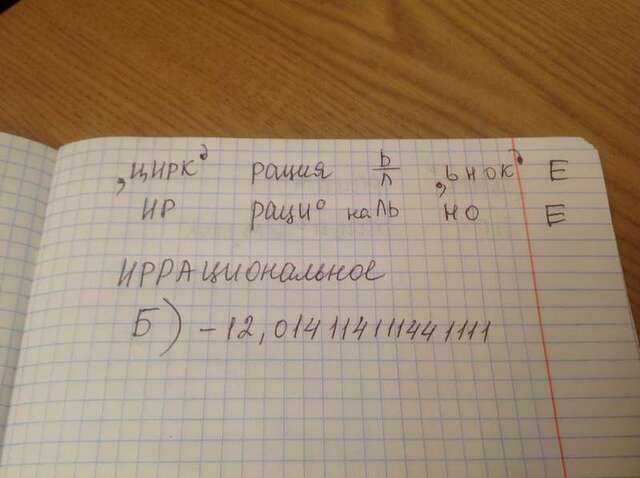 ,ЦИРК, рация Ь/Л ,ЬНОК, Е
ИР рациO наЛЬ НО Е
ИРРАЦИОНАЛЬНОЕ
Б) -12,014114111441111